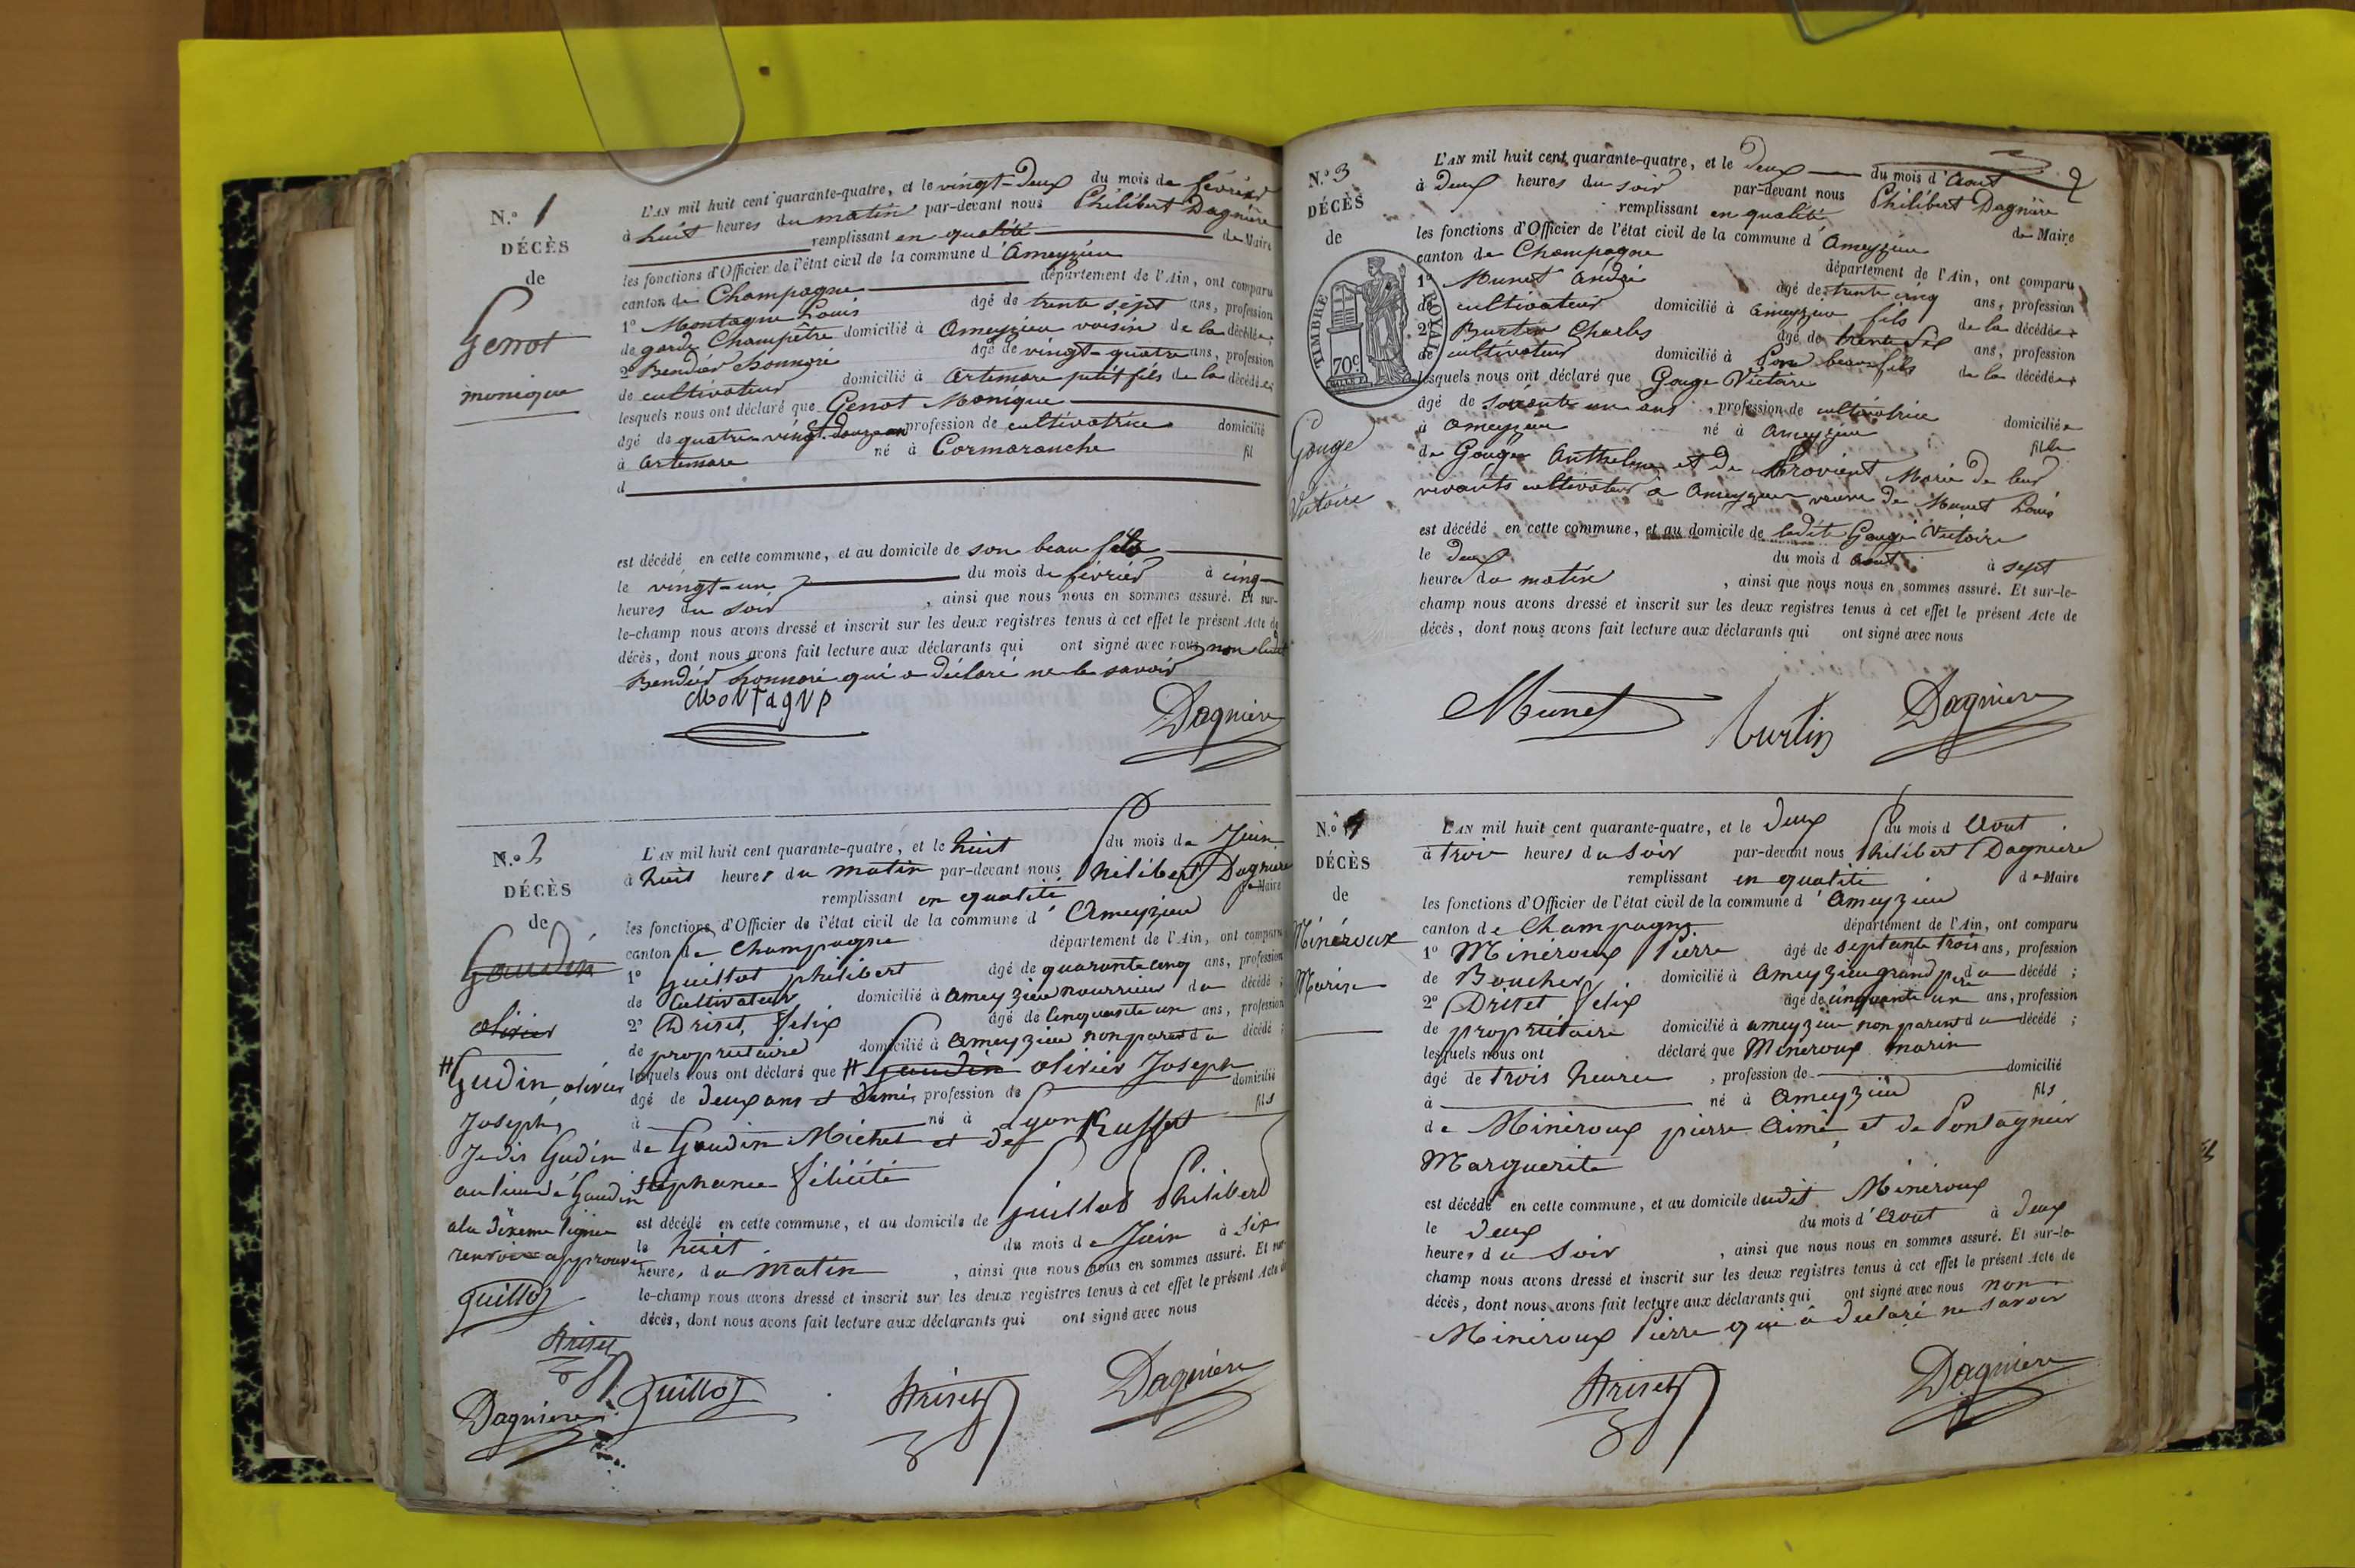 N.º 1
DÉCÈS
de
Genot
monique
L'AN mil huit cent quarante-quatre, et le vingt-deux du mois de février
à huit heures du matin par-devant nous Philibert Dagnière
remplissant en qualité de Maire
les fonctions d'Officier de l'état civil de la commune d'Ameyzieu
canton de Champagne département de l'Ain, ont comparu
1º Montagne Louis âgé de trente sept ans, profession
de garde Champêtre domicilié à Ameyzieu voisin de la décédée
2º Bendier honnoré âgé de vingt-quatre ans, profession
de cultivateur domicilié à Artemare petit fils de la décédée
lesquels nous ont déclaré que Genot Monique
âgé de quatre-vingt-douze an profession de cultivatrice domicilié
à Artemare né à Cormaranche fil
d
est décédé en cette commune, et au domicile de son beau fils
le vingt-un du mois de février à cinq
heures du soir, ainsi que nous nous en sommes assuré. Et sur-
le-champ nous avons dressé et inscrit sur les deux registres tenus à cet effet le présent Acte de
décès, dont nous avons fait lecture aux déclarants qui ont signé avec nous non ledit
Bendier honnoré qui a déclaré ne le savoir
Montagne
Dagnière
N.º 2
DÉCÈS
de
Gaudin
olivier
# Gudin, olivier
Joseph,
Je dis Gudin
au lieu de Gaudin
a la dixeme ligne
renvoi approuvé
Guillot
Driset
Dagniere
L'AN mil huit cent quarante-quatre, et le huit du mois de Juin
à huit heures du matin par-devant nous Philibert Dagniere
remplissant en qualité de Maire
les fonctions d'Officier de l'état civil de la commune d'Ameyzieu
canton de Champagne département de l'Ain, ont comparu
1º Guillot philibert âgé de quarante cinq ans, profession
de Cultivateur domicilié à Ameyzieu nourricier du décédé ;
2º Driset, felix âgé de Cinquante un ans, profession
de propriétaire domicilié à Ameyzieu non parent du décédé ;
lesquels nous ont déclaré que # Gaudin olivier Joseph
âgé de Deux ans et demi, profession de domicilié
à né à Lyon fils
de Gaudin Michel et de Russet
stephanie félicité
est décédé en cette commune, et au domicile de Guillot Philibert
le huit du mois de Juin à six
heures du Matin, ainsi que nous nous en sommes assuré. Et sur-
le-champ nous avons dressé et inscrit sur les deux registres tenus à cet effet le présent Acte de
décès, dont nous avons fait lecture aux déclarants qui ont signé avec nous
Guillot
Driset
Dagniere
N.º 3
DÉCÈS
de
TIMBRE ROYAL
70c
Gouge
Victoire
L'AN mil huit cent quarante-quatre, et le Deux du mois d'Aout
à Deux heures du soir par-devant nous Philibert Dagnière
remplissant en qualité de Maire
les fonctions d'Officier de l'état civil de la commune d'Ameyzieu
canton de Champagne département de l'Ain, ont comparu
1º Munet André âgé de trente cinq ans, profession
de cultivateur domicilié à Ameyzieu fils de la décédée
2º Burtin Charles âgé de trente six ans, profession
de cultivateur domicilié à beau fils de la décédée
lesquels nous ont déclaré que Gouge Victoire
âgé de soixante un ans, profession de cultivatrice domiciliée
à Ameyzieu né à Ameyzieu fille
de Gouge Anthelme et de Marie de leur
vivants cultivateur à Ameyzieu veuve de Munet Louis
est décédé en cette commune, et au domicile de ladite Gouge Victoire
le Deux du mois d'Aout à sept
heures du matin, ainsi que nous nous en sommes assuré. Et sur-le-
champ nous avons dressé et inscrit sur les deux registres tenus à cet effet le présent Acte de
décès, dont nous avons fait lecture aux déclarants qui ont signé avec nous
Munet
Burtin
Dagniere
N.º 4
DÉCÈS
de
Minéroux
Marin
L'AN mil huit cent quarante-quatre, et le Deux du mois d'Aout
à trois heures du Soir par-devant nous Philibert Dagniere
remplissant en qualité de Maire
les fonctions d'Officier de l'état civil de la commune d'Ameyzieu
canton de Champagne département de l'Ain, ont comparu
1º Minéroux Pierre âgé de septante trois ans, profession
de Boucher domicilié à Ameyzieu grand père du décédé ;
2º Driset felix âgé de cinquante un ans, profession
de propriétaire domicilié à ameyzieu non parent du décédé ;
lesquels nous ont déclaré que Mineroux marin
âgé de trois heures, profession de domicilié
à né à Ameyzieu fils
de Mineroux pierre Aimé, et de Pontagnier
Marguerite
est décédé en cette commune, et au domicile dudit Mineroux
le Deux du mois d'Aout à Deux
heures du Soir, ainsi que nous nous en sommes assuré. Et sur-le-
champ nous avons dressé et inscrit sur les deux registres tenus à cet effet le présent Acte de
décès, dont nous avons fait lecture aux déclarants qui ont signé avec nous non
Mineroux Pierre qui a declaré ne savoir
Driset
Dagniere